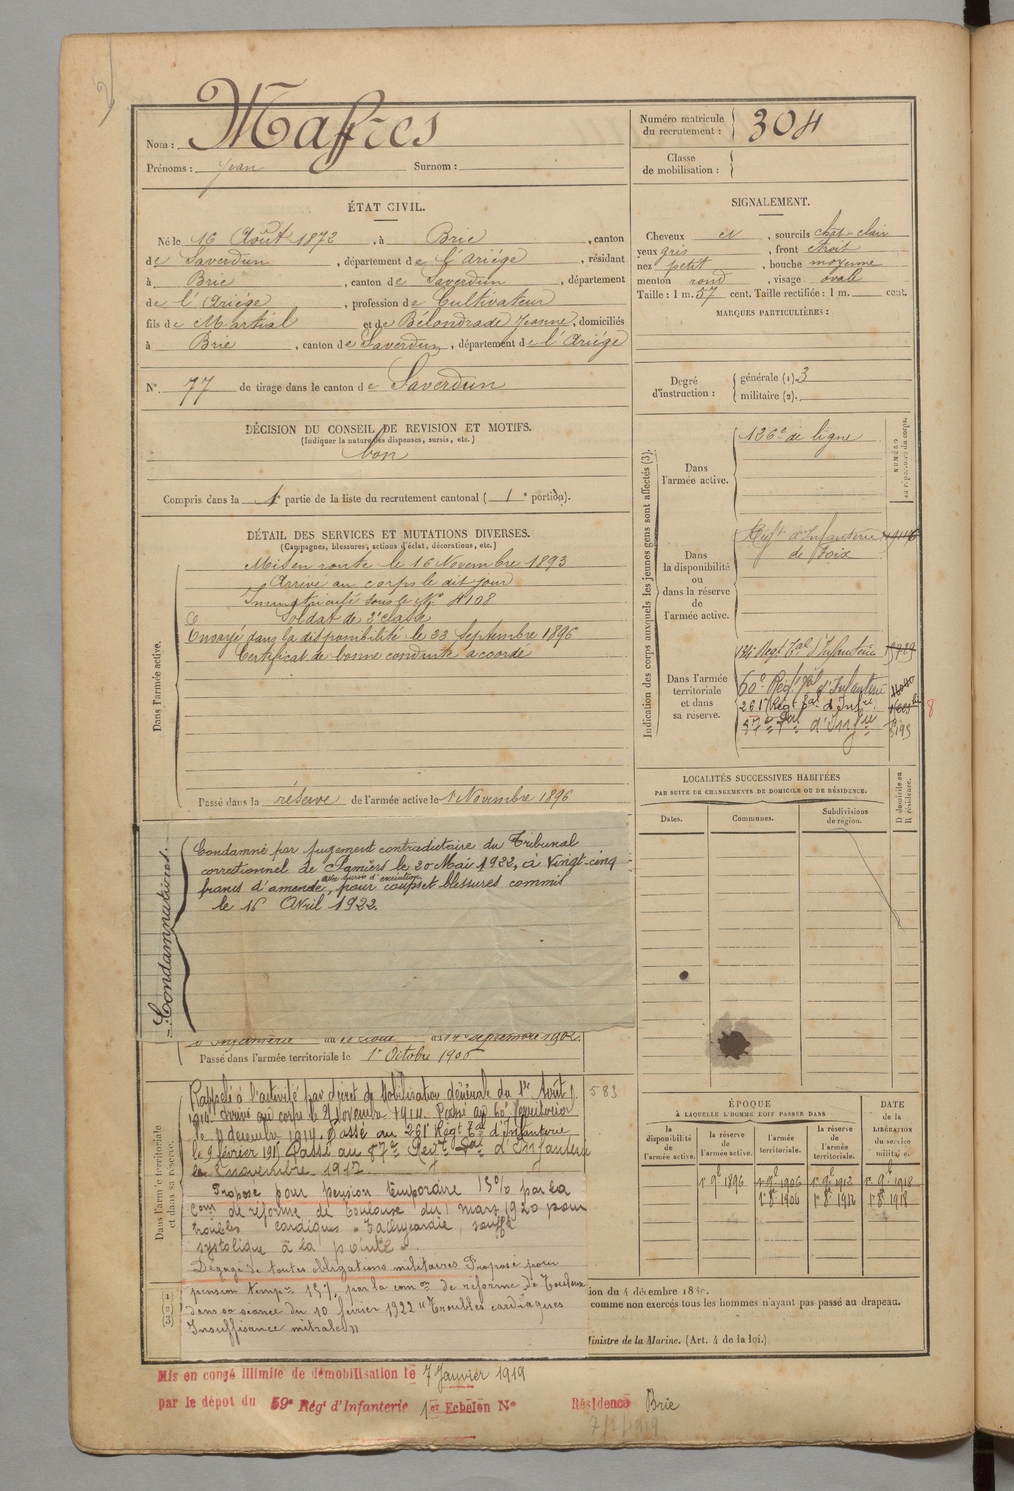 Nom : Maffres
Prénoms : Jean Surnom :
Numéro matricule
du recrutement : 304
Classe
de mobilisation :
ÉTAT CIVIL.
Né le 16 Août 1872, à Brie, canton
de Saverdun, département de l'Ariége, résidant
à Brie, canton de Saverdun, département
de l'Ariége, profession de Cultivateur
fils de Martial et de Bélondrade Jeanne, domiciliés
à Brie, canton de Saverdun, département de l'Ariége
N° 77 de tirage dans le canton de Saverdun
SIGNALEMENT.
Cheveux et, sourcils chat-clair
yeux gris, front étroit
nez petit, bouche moyenne
menton rond, visage ovale
Taille : 1 m. 57 cent. Taille rectifiée : 1 m. cent.
MARQUES PARTICULIÈRES :
Degré
d'instruction :
générale (1) 3
militaire (2).
DÉCISION DU CONSEIL DE REVISION ET MOTIFS.
(Indiquer la nature des dispenses, sursis, etc.)
bon
Compris dans la 1e partie de la liste du recrutement cantonal ( 1e portion).
DÉTAIL DES SERVICES ET MUTATIONS DIVERSES.
(Campagnes, blessures, actions d'éclat, décorations, etc.)
Dans l'armée active.
Mis en route le 16 Novembre 1893
Arrivé au corps le dit jour
Immatriculé sous le N° 4108
Soldat de 2e classe
Envoyé dans la disponibilité le 23 Septembre 1896
Certificat de bonne conduite accordé
Passé dans la réserve de l'armée active le 1 Novembre 1896
Indication des corps auxquels les jeunes gens sont affectés (3).
Dans
l'armée active.
126e de ligne
NUMÉRO
Dans
la disponibilité
ou
dans la réserve
de
l'armée active.
Régt d'Infanterie
de Foix
Dans l'armée
territoriale
et dans
sa réserve.
134 Régt Tal d'Infanterie
60e Régt Tal d'Infanterie
261e Régt Tal d'Infie
87e Tal d'Infie 8195
8
LOCALITÉS SUCCESSIVES HABITÉES
PAR SUITE DE CHANGEMENTS DE DOMICILE OU DE RÉSIDENCE.
Dates.
Communes.
Subdivisions
de région.
D domicile ou
R résidence.
Condamnations.
Condamné par jugement contradictoire du Tribunal
correctionnel de Pamiers le 20 Mai 1922, à vingt-cinq
francs d'amende, avec sursis d'exécution, pour coups et blessures commis
le 16 Avril 1922.
d'Infanterie du août au 14 septembre 1902
Passé dans l'armée territoriale le 1er Octobre 1906
Dans l'armée territoriale
et dans sa réserve.
Rappelé à l'activité par décret de Mobilisation Générale du 1er Août
1914. Arrivé au corps le 4 Novembre 1914. Passé au 60e Territorial
le 11 décembre 1914. Passé au 261e Régt Tal d'Infanterie
le 9 février 1915 Passé au 87e Régt Tal d'Infanterie
le 2 novembre 1917.
583
Proposé pour pension temporaire 15% par la
Com de réforme de Toulouse du 1 mars 1920 pour
troubles cardiaques " Tachycardie, souffle
systolique à la pointe ".
Dégagé de toutes obligations militaires Proposé pour
pension tempre 15%, par la com on de réforme de Toulouse
dans sa séance du 10 février 1922 "Troubles cardiaques
Insuffisance mitrale"
ÉPOQUE
À LAQUELLE L'HOMME DOIT PASSER DANS
la
disponibilité
de
l'armée active.
la réserve
de
l'armée active.
l'armée
territoriale.
la réserve
de
l'armée
territoriale.
DATE
de la
LIBÉRATION
du service
militaire.
1er 9e 1896 1er 9e 1906 1er 9e 1912 1er 9e 1918
1er 8e 1906 1er 8e 1912 1er 8e 1918
(1)
(2)
(3)
comme non exercés tous les hommes n'ayant pas passé au drapeau.
Ministre de la Marine. (Art. 4 de la loi.)
Mis en congé illimité de démobilisation le 7 Janvier 1919
par le dépot du 59e Régt d'Infanterie 1er Echelon N° Résidence Brie